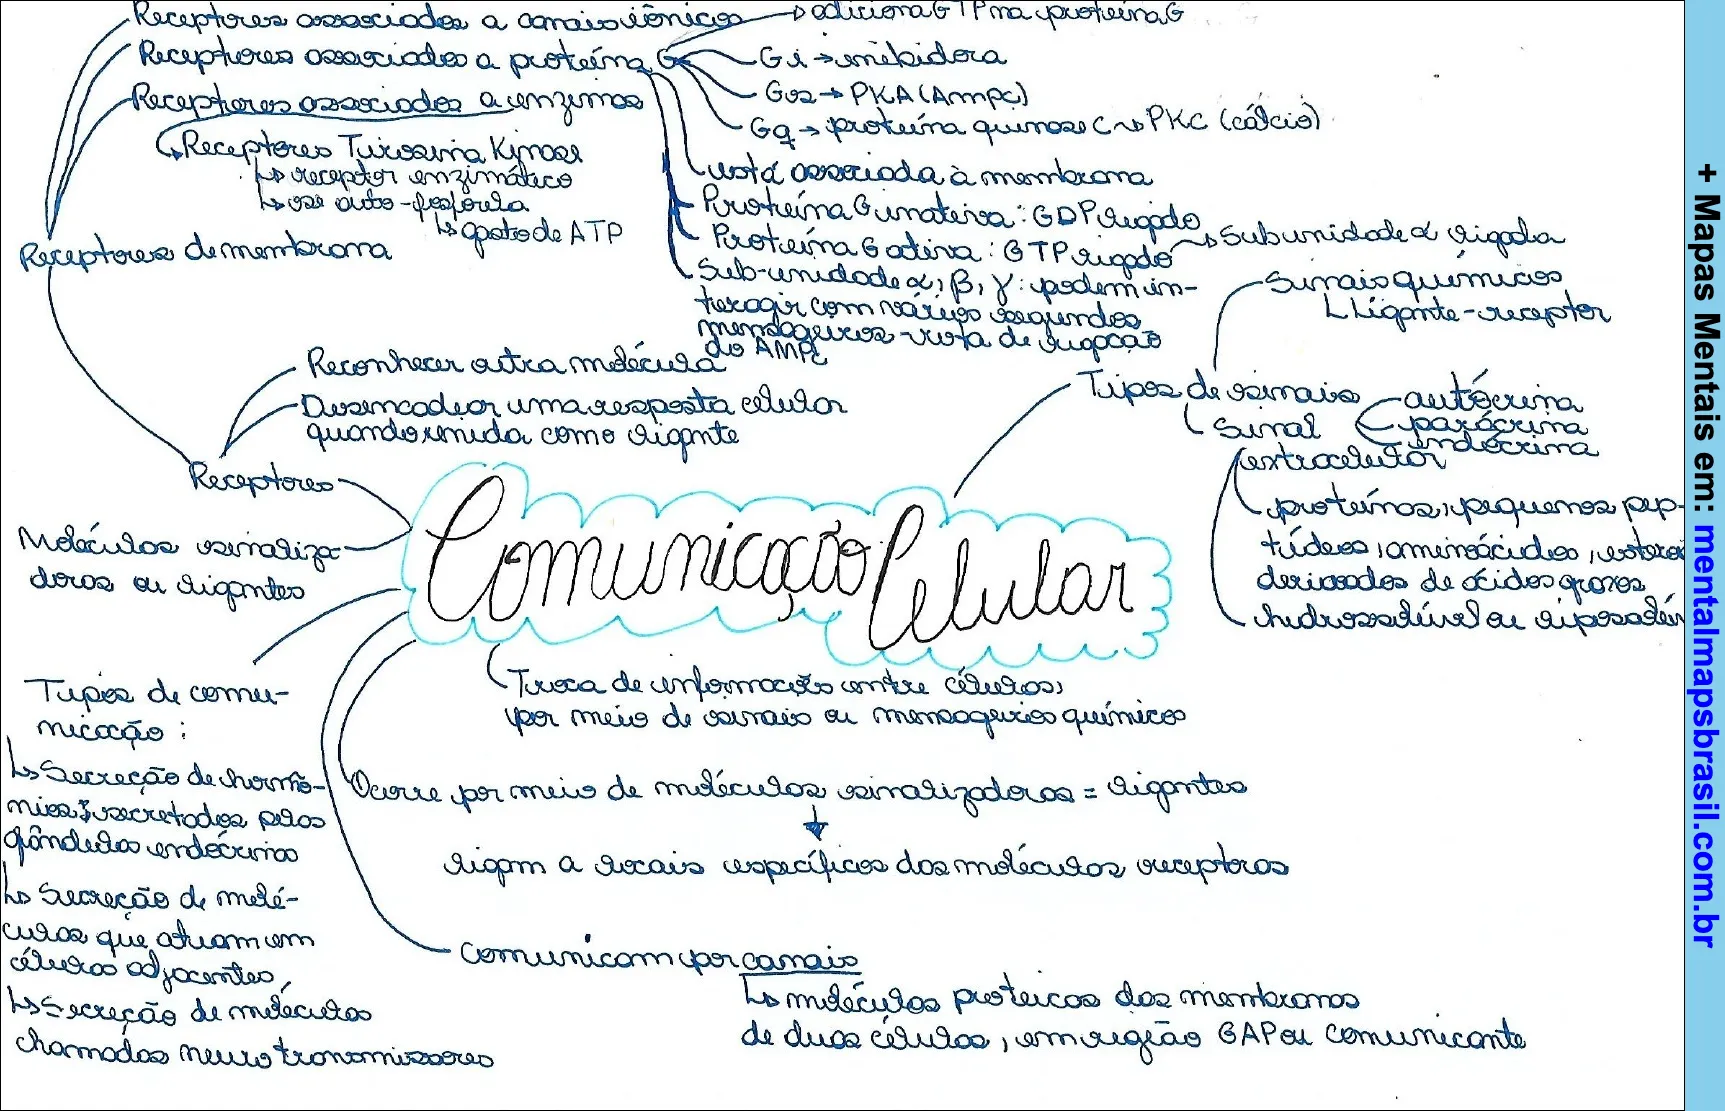 Receptores associados a canais iônicos
adiciona GTP na proteína G
Receptores associados a proteína G
Gi → inibidora
Gs → PKA (Ampc)
Gq → proteína quinase C → PKC (cálcio)
Receptores associados a enzimas
↳ Receptores Tirosina Kinase
↳ receptor enzimático
↳ se auto-fosforila
↳ gasto de ATP
está associada à membrana
Proteína G inativa: GDP ligado
Proteína G ativa: GTP ligado → Subunidade α ligada
Sub-unidade α, β, γ: podem in-
teragir com vários segundos
mensageiros - rota de ligação
do AMPc
Receptores de membrana
Sinais químicos
Ligante-receptor
Reconhecer outra molécula
Desencadear uma resposta celular
quando unida como ligante
Receptores
Tipos de sinais
Sinal
extracelular
autócrina
parácrina
endócrina
proteínas, pequenos pep-
tídeos, aminoácidos,
derivados de ácidos graxos
hidrossolúvel ou
Moléculas sinaliza-
doras ou ligantes
Comunicação Celular
Troca de informação entre células,
por meio de sinais ou mensageiros químicos
Tipos de comu-
nicação:
↳ Secreção de hormô-
nios secretados pelas
glândulas endócrinas
↳ Secreção de molé-
culas que atuam em
células adjacentes,
↳ Secreção de moléculas
chamadas neurotransmissores
Ocorre por meio de moléculas sinalizadoras = ligantes
↓
ligam a locais específicos das moléculas receptoras
comunicam por canais
↳ moléculas proteicas das membranas
de duas células, em região GAP ou comunicante
+ Mapas Mentais em: mentalmapsbrasil.com.br